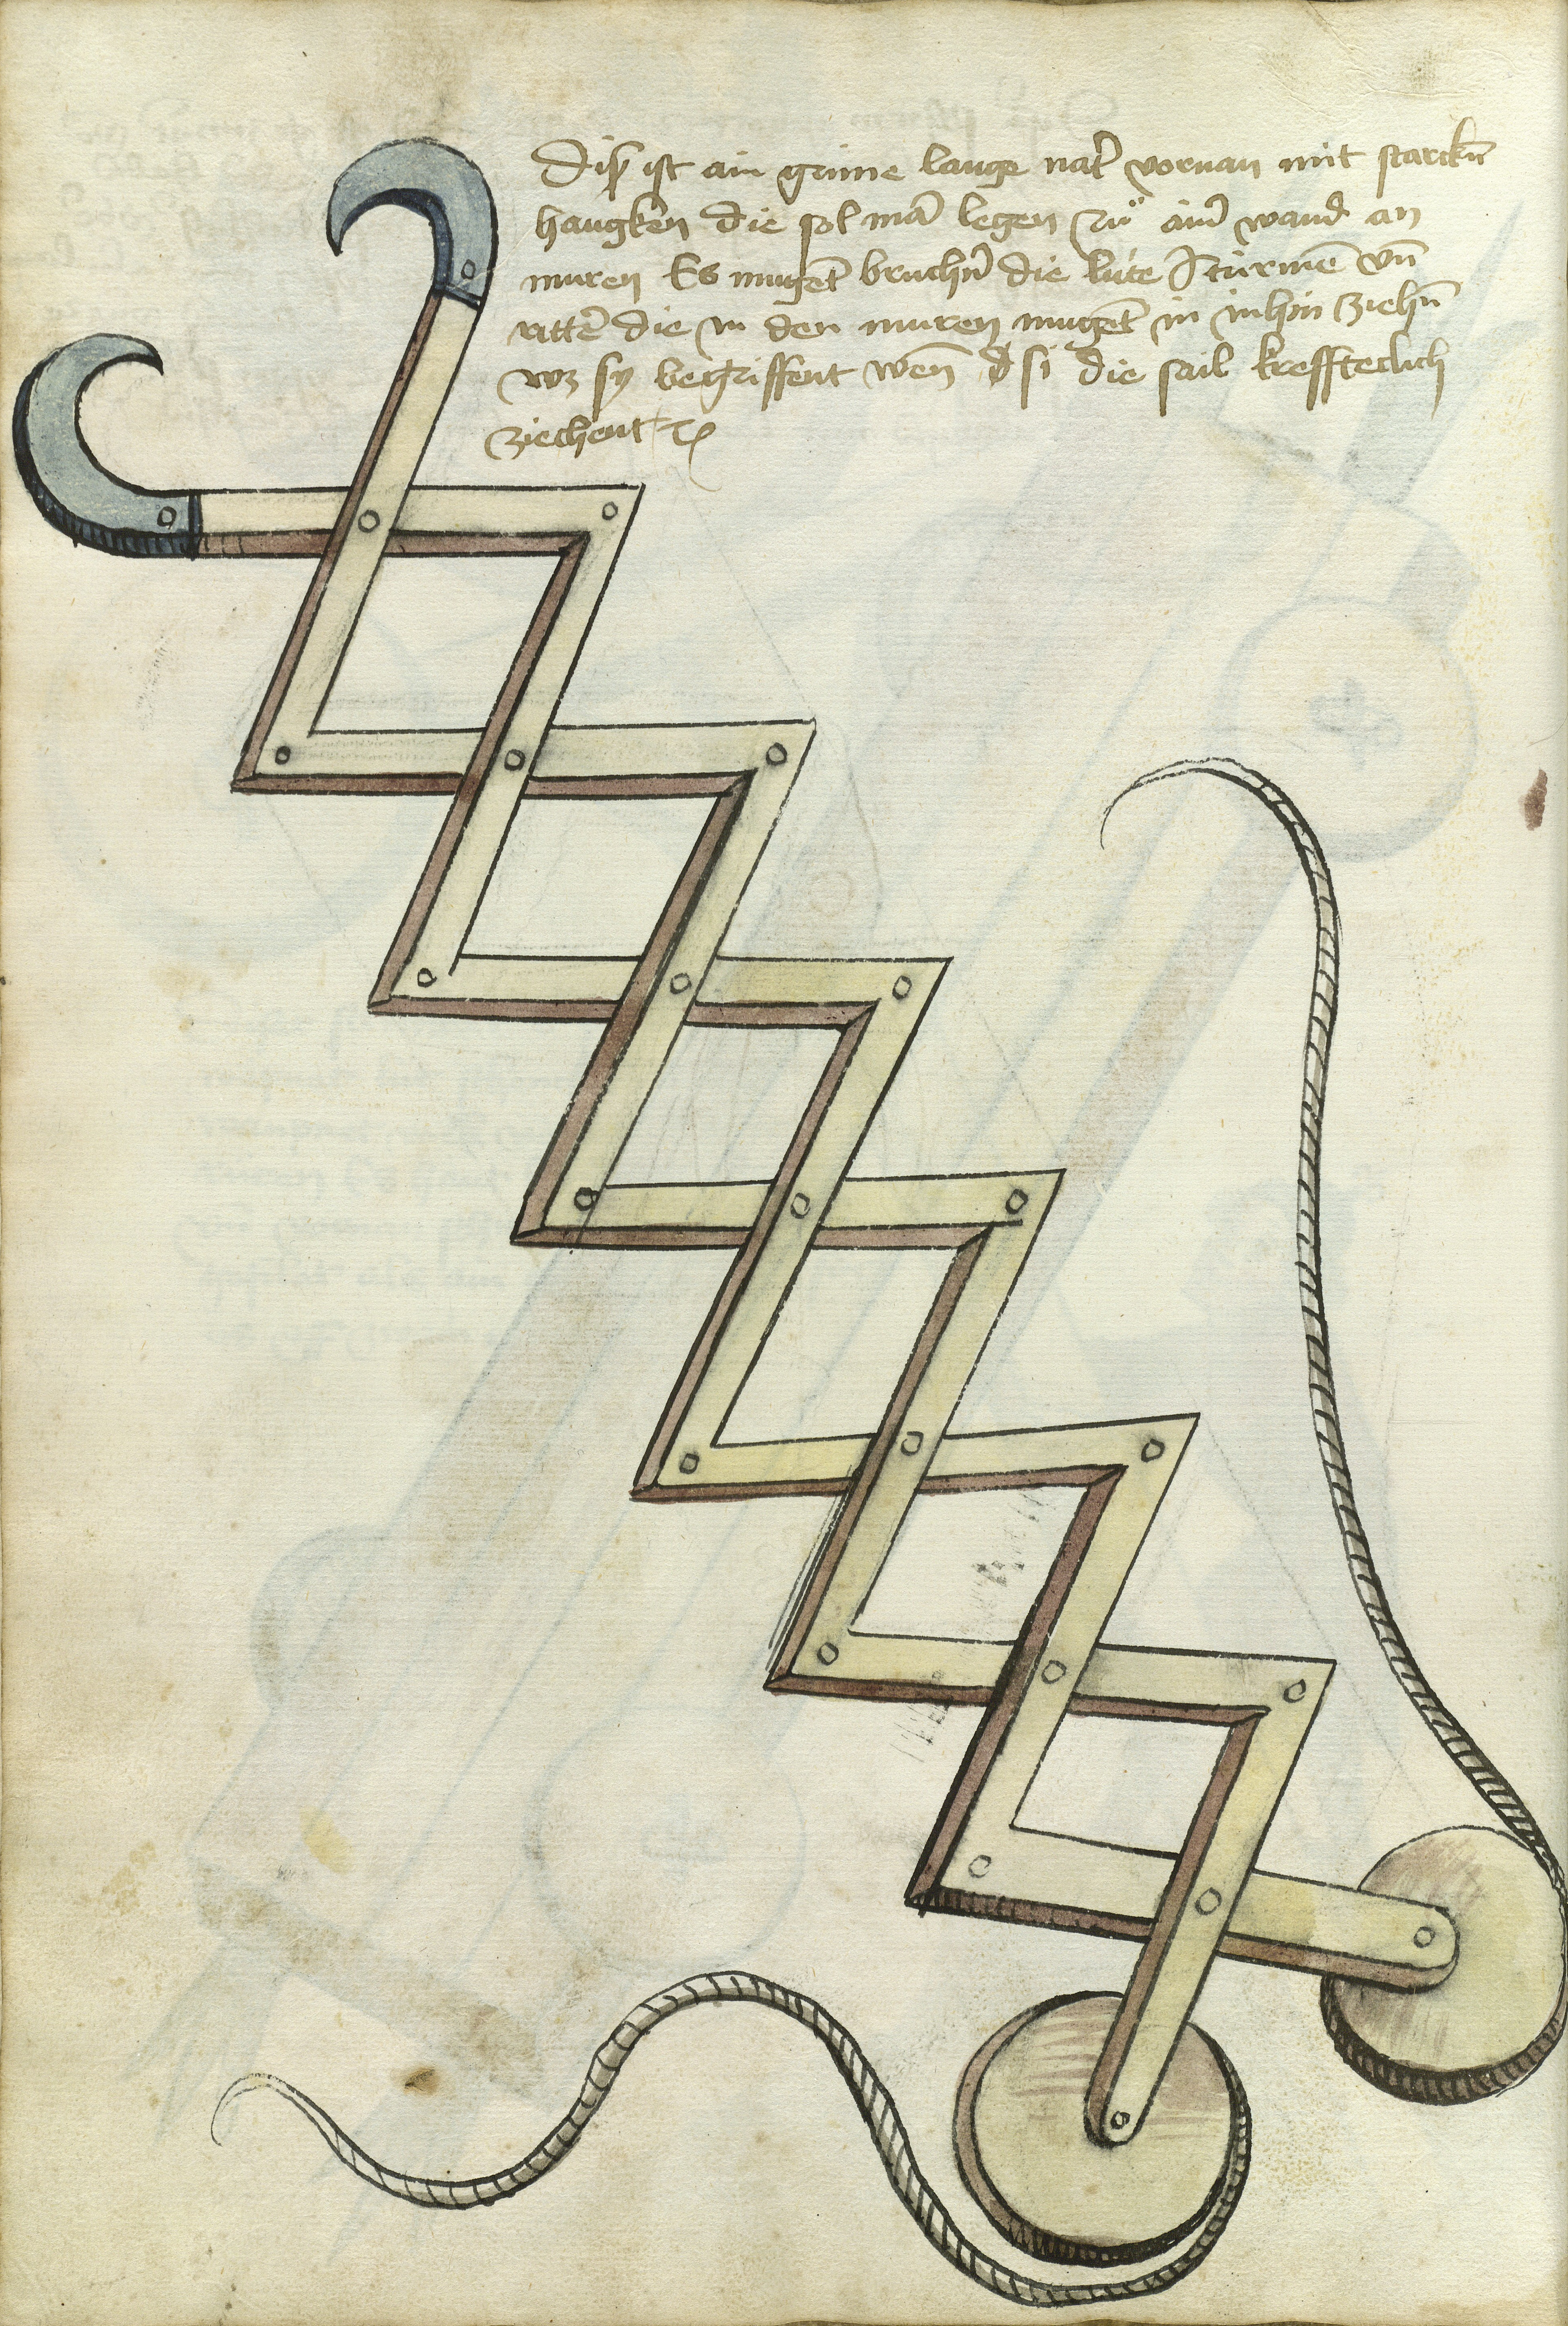 Diß ist ain grime lange nat̃ vornan mit starckñ
haugken die sol mã legen zů ain̾ wand an
muren Es mugent̃ bruchñ die lúte Itúrmẽ vñ
rittẽ die in den muren mugent̃ in inhin ziehñ
wz sy begriffent weñ dz si die sail kreffteclich
ziechent ꝛc